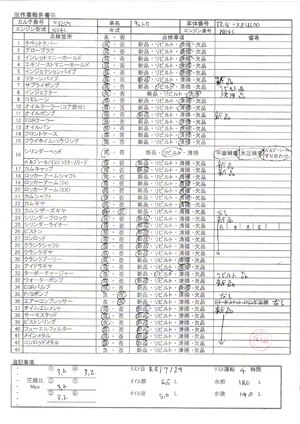 ※作業報告書※
カルテ番号 車名 車体番号
エンジン型式 N04C 年式 エンジン番号 N04C
点検箇所 良・否 点検事項 備考
1 タペットカバー 良 否 新品・リビルト・清掃・欠品
2 グロープラグ 良 否 新品・リビルト・清掃・欠品
3 インレットマニーホールド 良 否 新品・リビルト・清掃・欠品
4 エキゾーストマニーホールド 良 否 新品・リビルト・清掃・欠品
5 インジェクションパイプ 良 否 新品・リビルト・清掃・欠品
6 リターンパイプ 良 否 新品・リビルト・清掃・欠品 新品
7 サプライポンプ 良 否 新品・リビルト・清掃・欠品 リビルト品
8 インジェクター 良 否 新品・リビルト・清掃・欠品
9 コモレール 良 否 新品・リビルト・清掃・欠品
10 オイルクーラー(コア部分) 良 否 新品・リビルト・清掃・欠品
11 オイルポンプ 良 否 新品・リビルト・清掃・欠品
12 EGRクーラー 良 否 新品・リビルト・清掃・欠品
13 オイルパン 良 否 新品・リビルト・清掃・欠品
14 フロントケース 良 否 新品・リビルト・清掃・欠品
15 フライホイルハウジング 良 否 新品・リビルト・清掃・欠品
シリンダーヘッド 良 否 新品・リビルト・清掃・欠品 平面研磨 水圧検査
17 カムキャップ 良 否 新品・リビルト・清掃・欠品
18 ロッカーアームシャフト 良 否 新品・リビルト・清掃・欠品
19 ロッカーアーム(EX) 良 否 新品・リビルト・清掃・欠品
20 ロッカーアーム(IN) 良 否 新品・リビルト・清掃・欠品
21 カムシャフト 良 否 新品・リビルト・清掃・欠品
22 カムギヤ 良 否 新品・リビルト・清掃・欠品
23 カムシザーズギヤ 良 否 新品・リビルト・清掃・欠品 なし
24 シリンダーブロック 良 否 新品・リビルト・清掃・欠品 新品
25 シリンダーライナー 良 否 新品・リビルト・清掃・欠品
26 ピストン 良 否 新品・リビルト・清掃・欠品
27 コンロッド 良 否 新品・リビルト・清掃・欠品
28 クランクシャフト 良 否 新品・リビルト・清掃・欠品
29 クランクギヤ 良 否 新品・リビルト・清掃・欠品
30 クランクプーリー 良 否 新品・リビルト・清掃・欠品
31 アイドラギヤ 良 否 新品・リビルト・清掃・欠品
32 ターボーチャージャー 良 否 新品・リビルト・清掃・欠品 リビルト品
33 ウォーターポンプ 良 否 新品・リビルト・清掃・欠品 新品
34 EGRバルブ 良 否 新品・リビルト・清掃・欠品
35 PSポンプ 良 否 新品・リビルト・清掃・欠品 なし
36 エアーコンプレッサー 良 否 新品・リビルト・清掃・欠品
37 オイルエレメント 良 否 新品・リビルト・清掃・欠品 新品
38 サーモスタット 良 否 新品・リビルト・清掃・欠品
39 ピストンリング 良 否 新品・リビルト・清掃・欠品
40 フューエルフィルター 良 否 新品・リビルト・清掃・欠品
41 メインメタル 良 否 新品・リビルト・清掃・欠品
42 コンロッドメタル 良 否 新品・リビルト・清掃・欠品
追記事項
① 3.2 ④ 3.2 テスト日 R3/7/29 テスト運転 4 時間
圧縮圧 Mpa ② 3.2 ⑤ オイル前 6.5 L 水前 18.0 L
③ ⑥ オイル後 5.0 L 水後 14.0 L